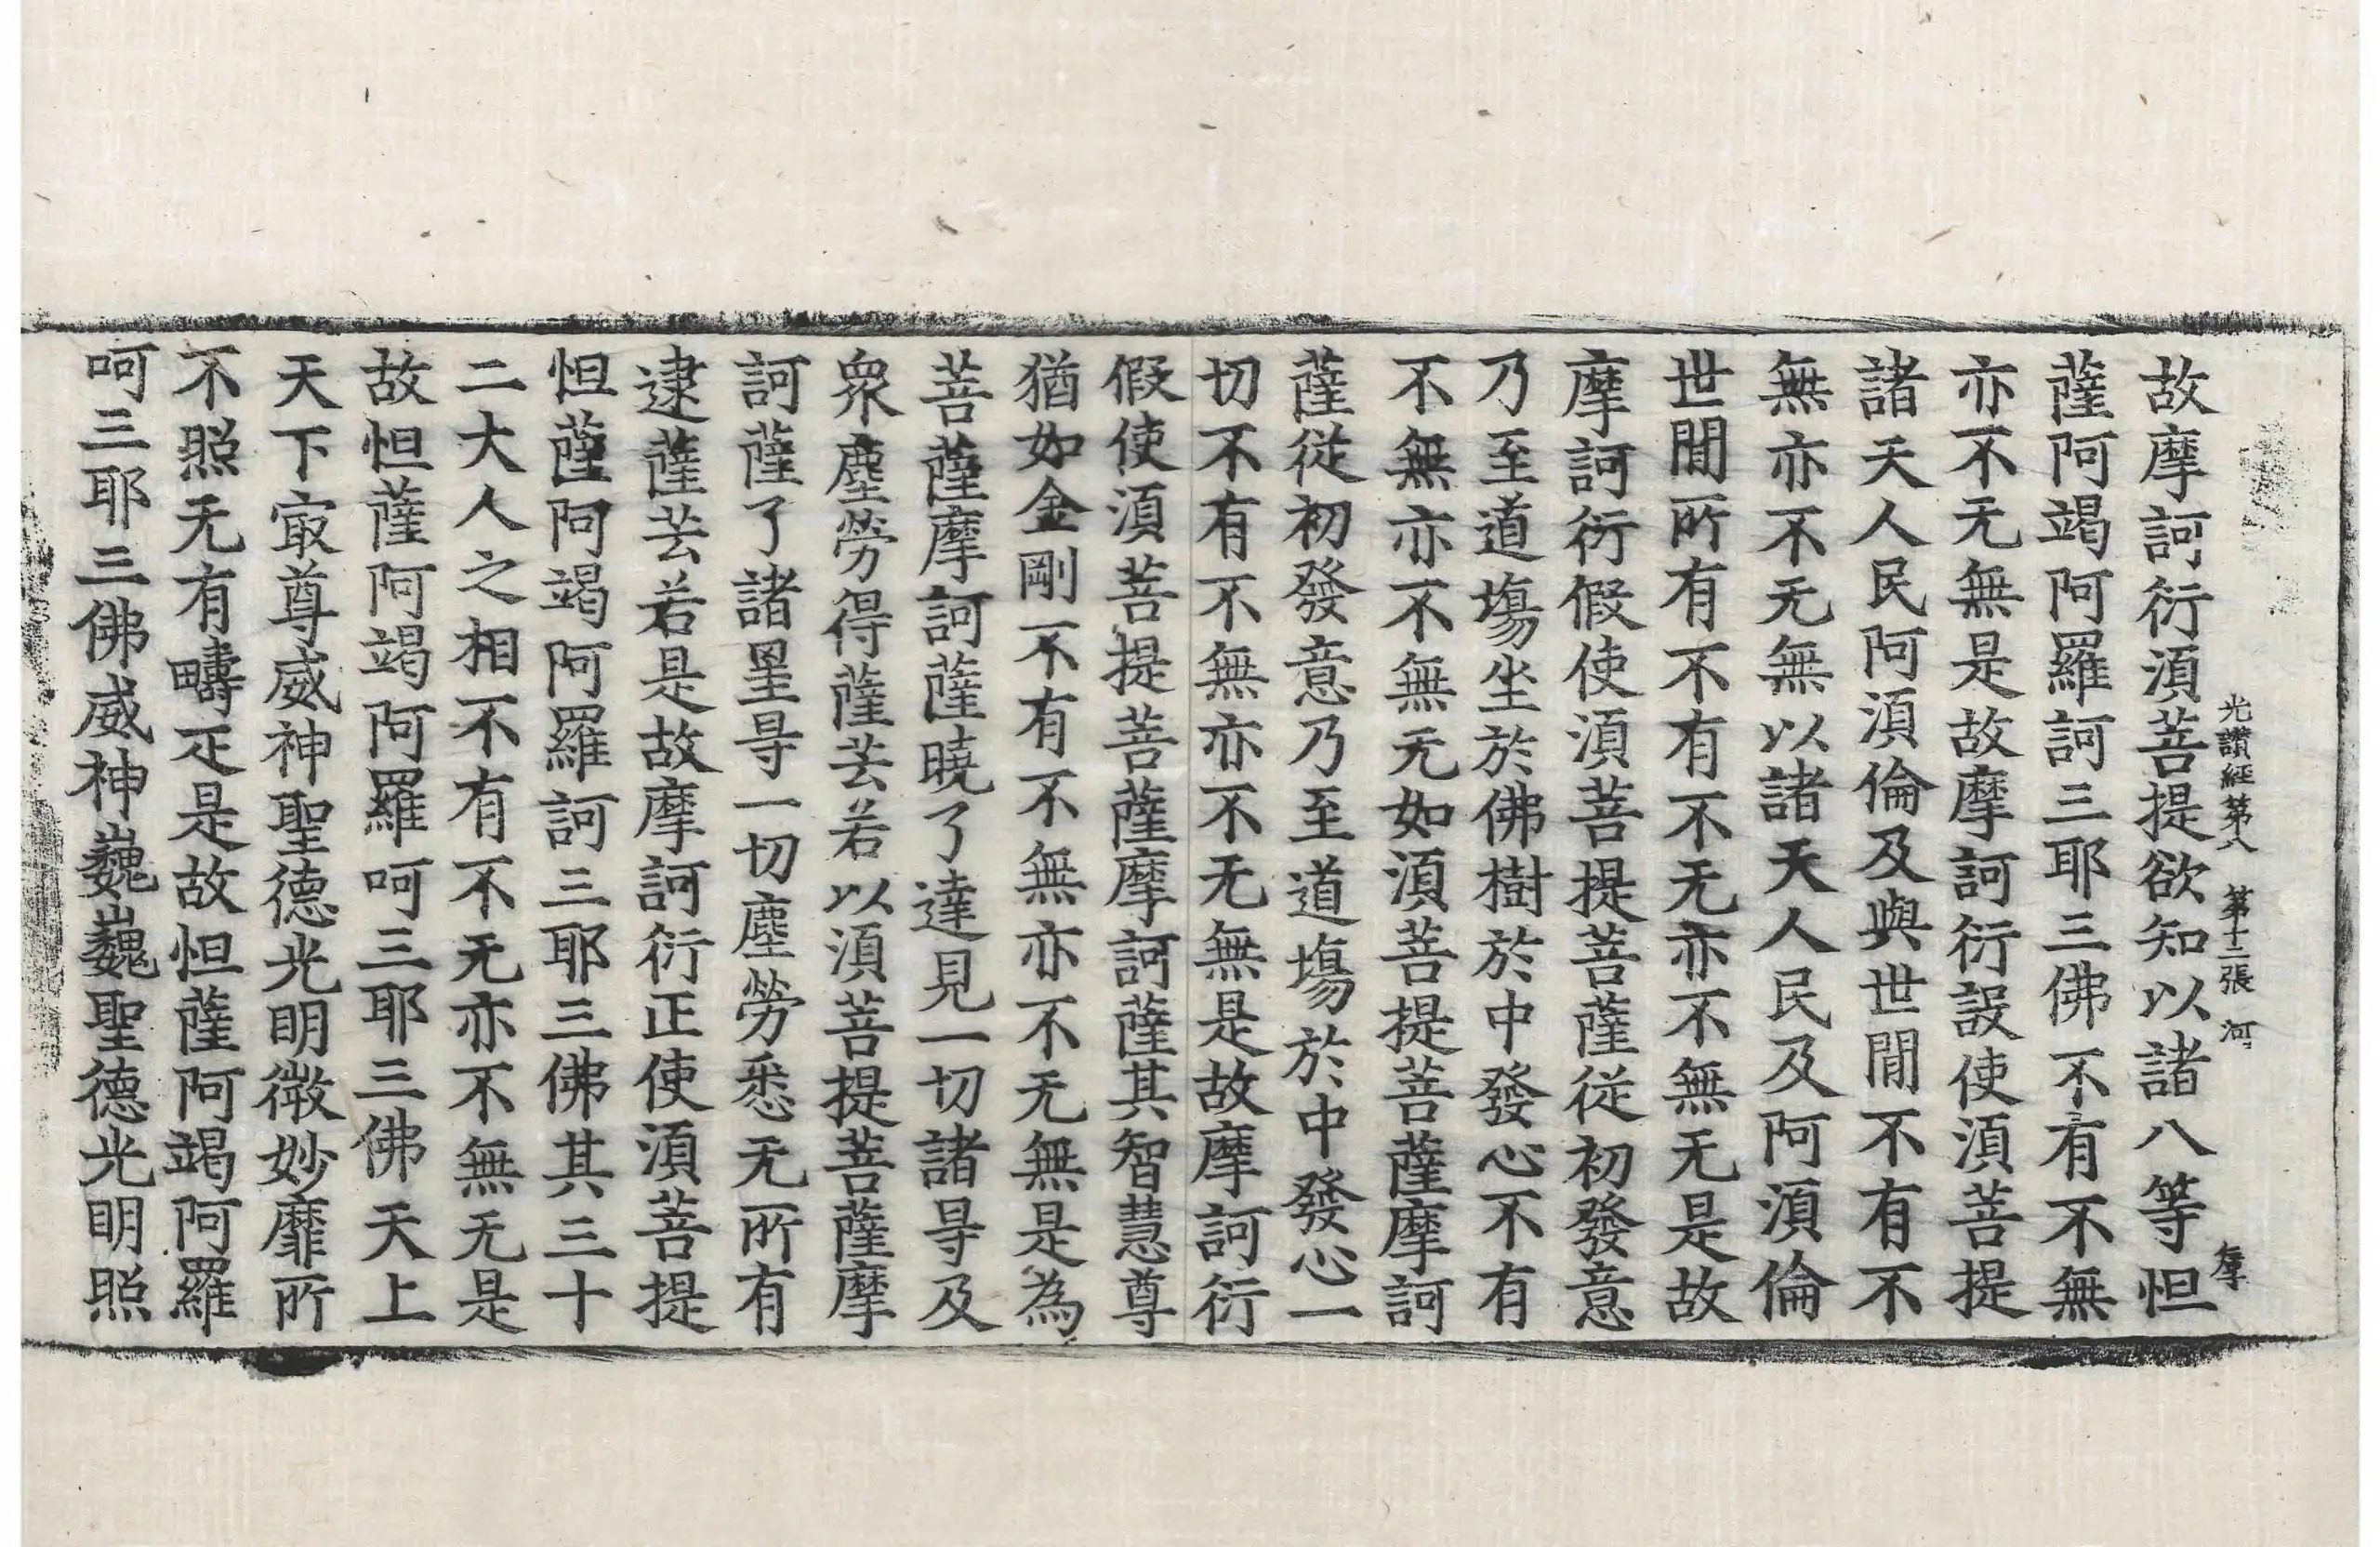 光讃経第八 第十二張 河
故摩訶衍湏菩提欲知以諸八等怛
薩阿竭阿羅訶三耶三佛不有不無
亦不无無是故摩訶衍設使湏菩提
諸天人民阿湏倫及與世閒不有不
無亦不无無以諸天人民及阿湏倫
世閒所有不有不无亦不無无是故
摩訶衍假使湏菩提菩薩従初發意
乃至道塲坐於佛樹於中發心不有
不無亦不無无如湏菩提菩薩摩訶
薩従初發意乃至道塲於中發心一
切不有不無亦不无無是故摩訶衍
假使湏菩提菩薩摩訶薩其智慧尊
猶如金剛不有不無亦不无無是為
菩薩摩訶薩曉了達見一切諸㝵及
衆塵勞得薩芸若以湏菩提菩薩摩
訶薩了諸罣㝵一切塵勞悉无所有
逮薩芸若是故摩訶衍正使湏菩提
怛薩阿竭阿羅訶三耶三佛其三十
二大人之相不有不无亦不無无是
故怛薩阿竭阿羅呵三耶三佛天上
天下㝡尊威神聖德光明微妙靡所
不照无有疇疋是故怛薩阿竭阿羅
呵三耶三佛威神巍巍聖德光明照